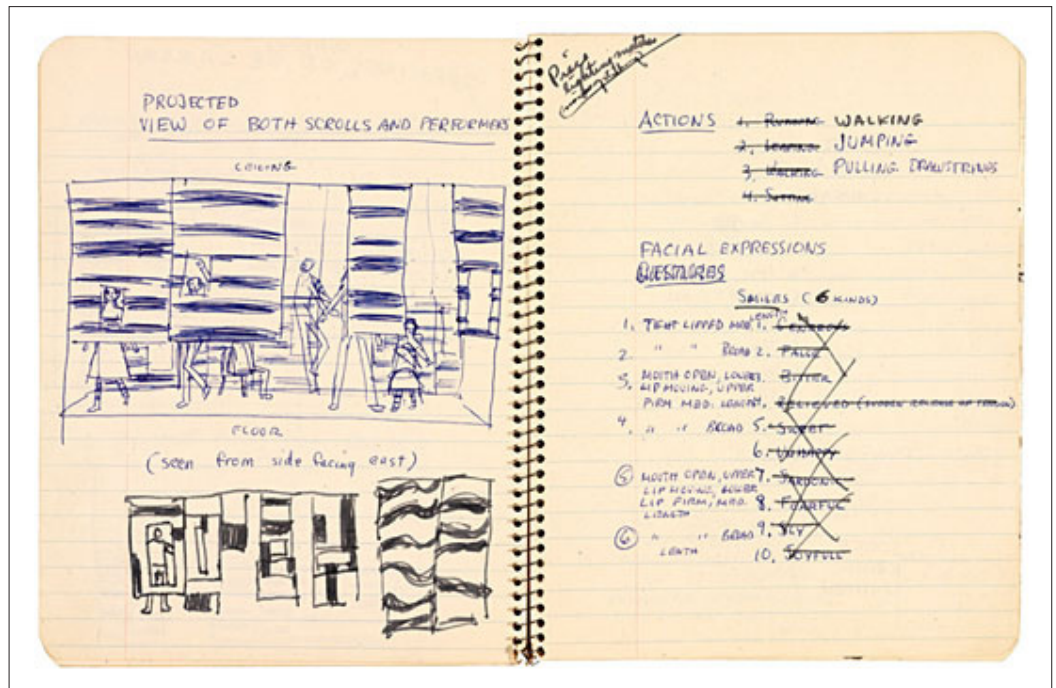 PROJECTED
VIEW OF BOTH SCROLLS AND PERFORMERS
CEILING
FLOOR
(seen from side facing east)
lighting matches
ACTIONS 1. RUNNING WALKING
2. LEAPING JUMPING
3. WALKING PULLING DRAWSTRINGS
4. SITTING
FACIAL EXPRESSIONS
GESTURES
SMILES (6 KINDS)
1. TIGHT LIPPED MED. LENGTH 1. GENEROUS
2. " " BROAD 2. FALSE
3. MOUTH OPEN, LOWER 3. BITTER
LIP MOVING, UPPER
FIRM MED. LENGTH 4. RELIEVED (SUDDEN RELEASE OF TENSION)
4. " " BROAD 5. SWEET
6.
5 MOUTH OPEN, UPPER 7. SARDONIC
LIP MOVING, LOWER
LIP FIRM, MED. 8. FEARFUL
LENGTH
6 " " BROAD 9. SLY
LENTH 10. JOYFULL